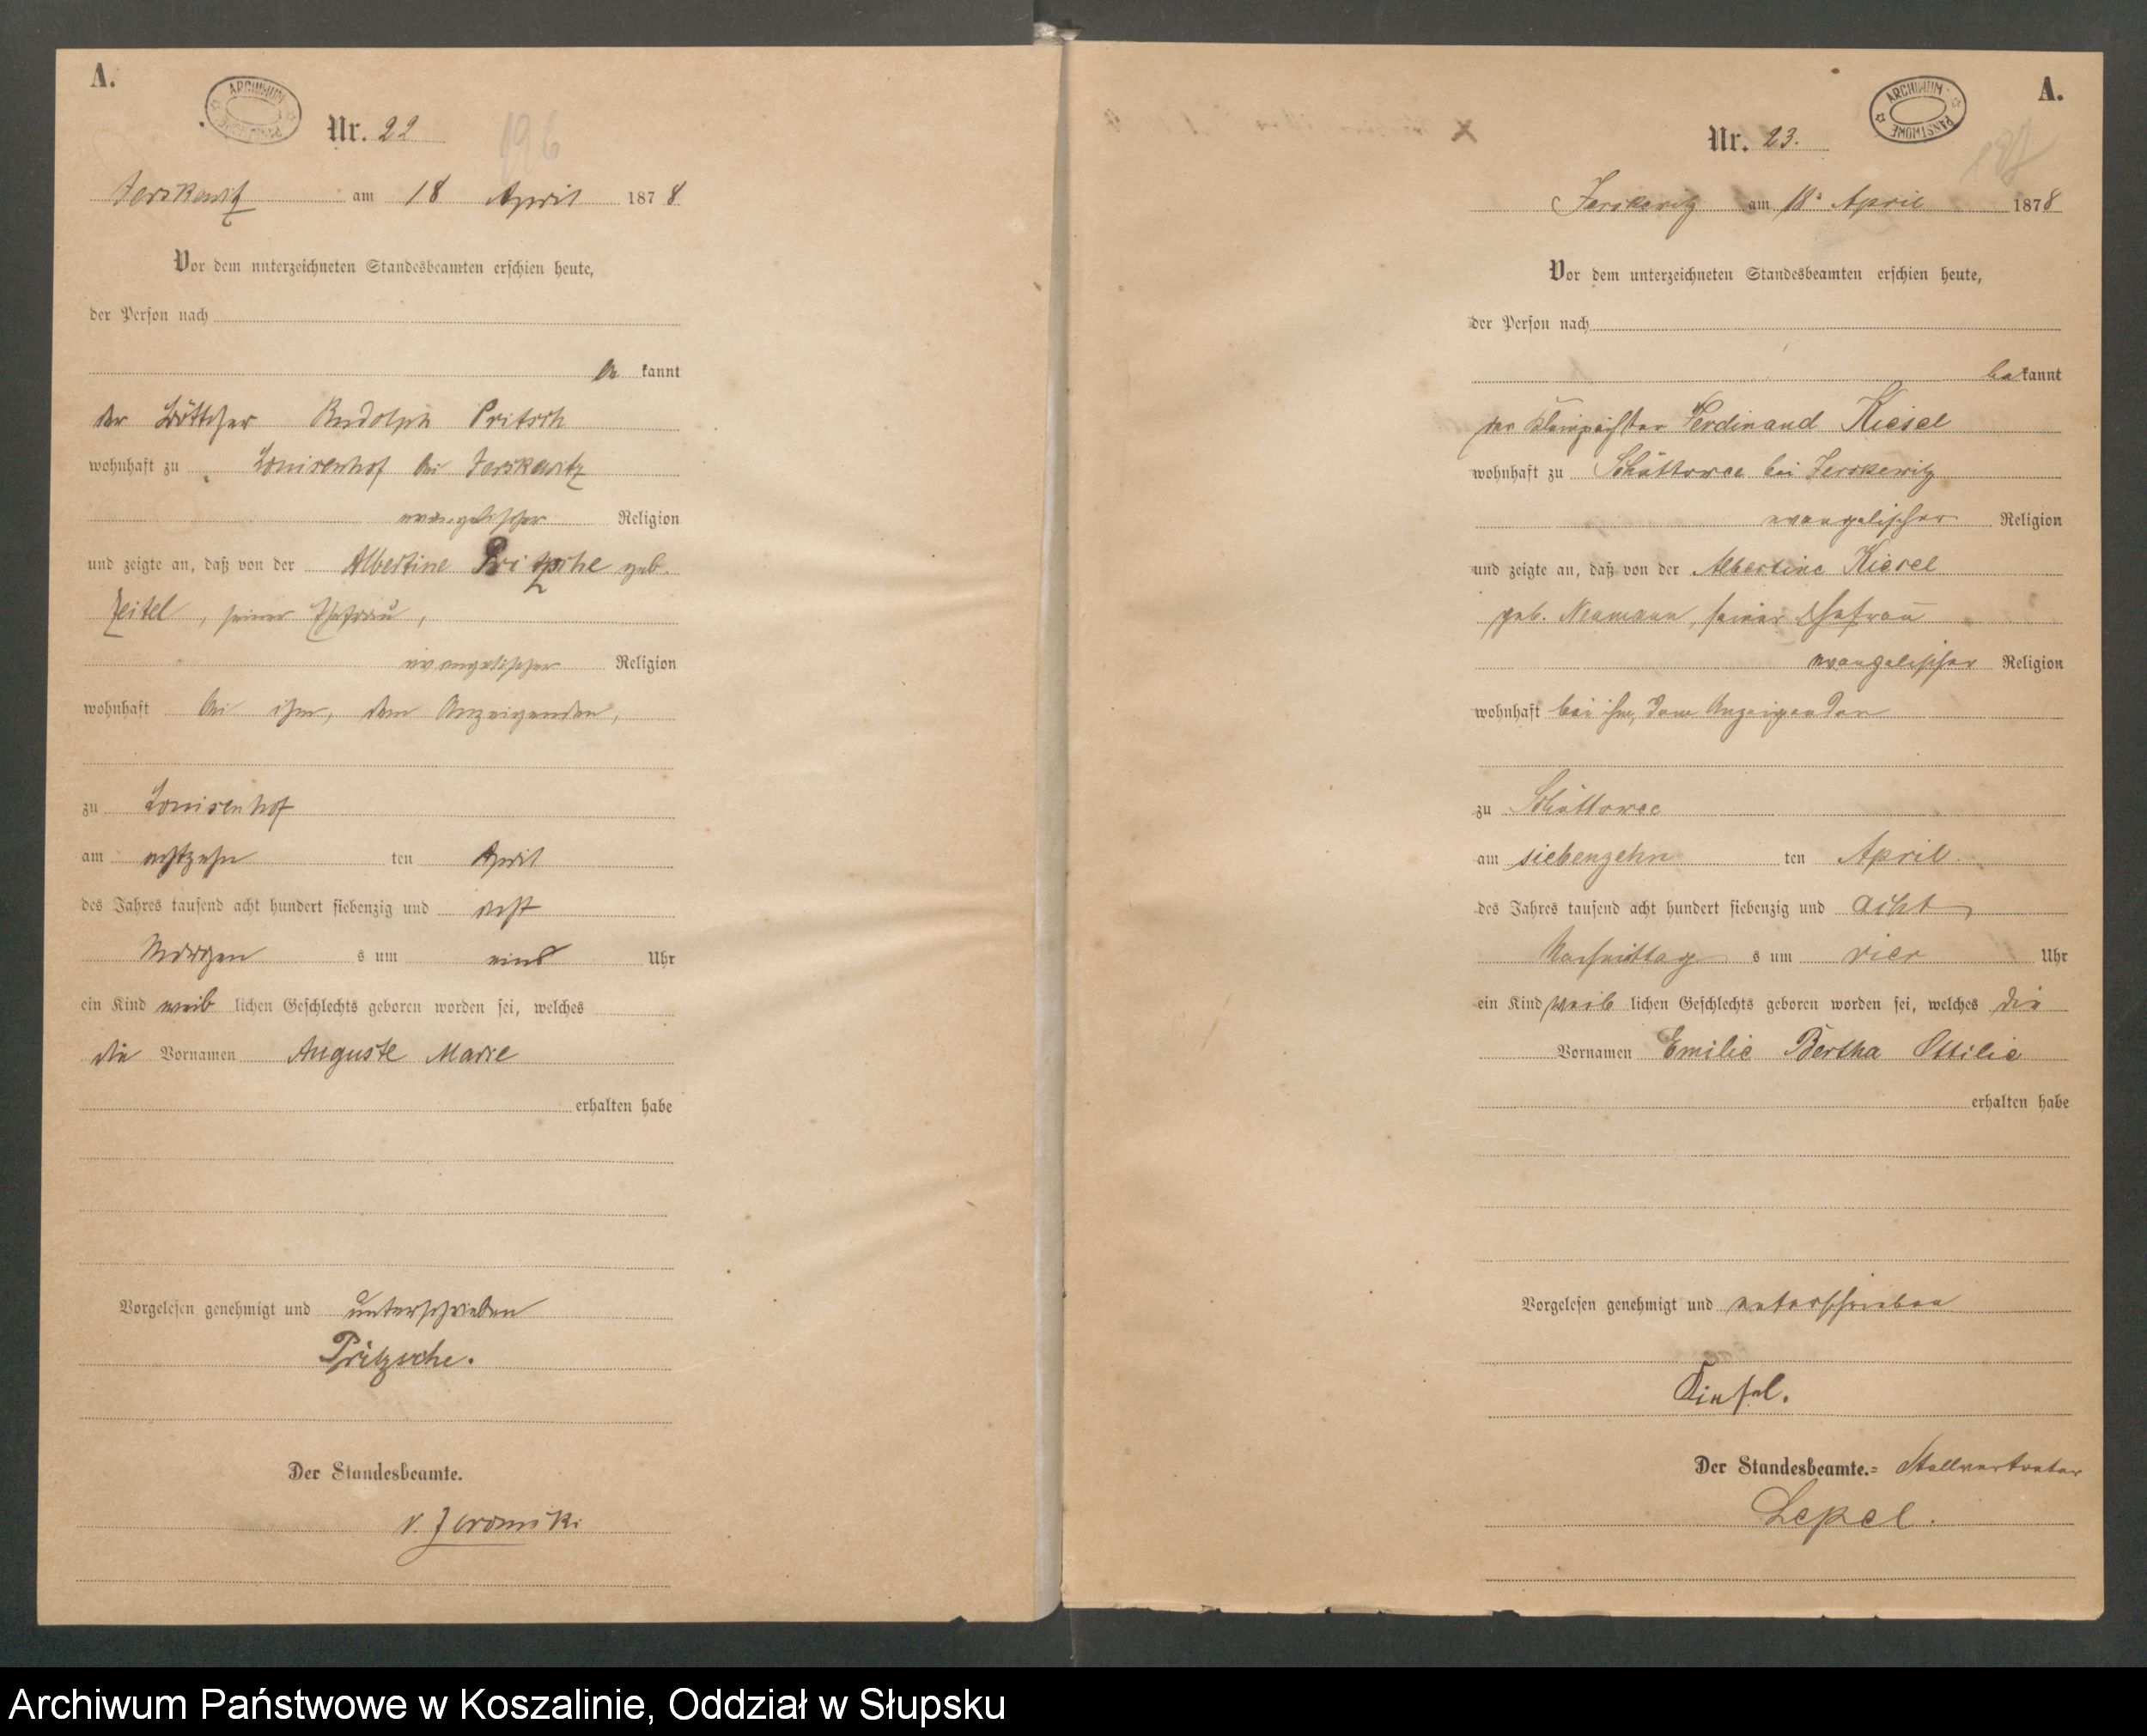 A.
ARCHIWUM PAŃSTWOWE
Nr. 22
196
Jerskewitz am 18 April 1878
Vor dem unterzeichneten Standesbeamten erschien heute,
der Person nach
be kannt
der Böttcher Rudolph Pritsch
wohnhaft zu Louisenhof bei Jerskewitz
evangelischer Religion
und zeigte an, daß von der Albertine Pritzsche geb.
Zeitel, seiner Ehefrau,
evangelischer Religion
wohnhaft bei ihm, dem Anzeigenden,
zu Louisenhof
am achtzehn ten April
des Jahres tausend acht hundert siebenzig und acht
Morgen s um eins Uhr
ein Kind weib lichen Geschlechts geboren worden sei, welches
die Vornamen Auguste Marie
erhalten habe
Vorgelesen genehmigt und unterschrieben
Pritzsche.
Der Standesbeamte.
v. Zeromski
A.
ARCHIWUM PAŃSTWOWE
Nr. 23.
Jerskewitz am 18. April 1878
Vor dem unterzeichneten Standesbeamten erschien heute,
der Person nach
be kannt
der Kleinpächter Ferdinand Kiesel
wohnhaft zu bei Jerskewitz
evangelischer Religion
und zeigte an, daß von der Albertine Kiesel
geb. Neumann, seiner Ehefrau
evangelischer Religion
wohnhaft bei ihm, dem Anzeigenden
zu
am siebenzehn ten April
des Jahres tausend acht hundert siebenzig und acht
Nachmittag s um vier Uhr
ein Kind weib lichen Geschlechts geboren worden sei, welches die
Vornamen Emilie Bertha Ottilie
erhalten habe
Vorgelesen genehmigt und unterschrieben
Kiesel.
Der Standesbeamte.= Stellvertreter
Lepel.
Archiwum Państwowe w Koszalinie, Oddział w Słupsku